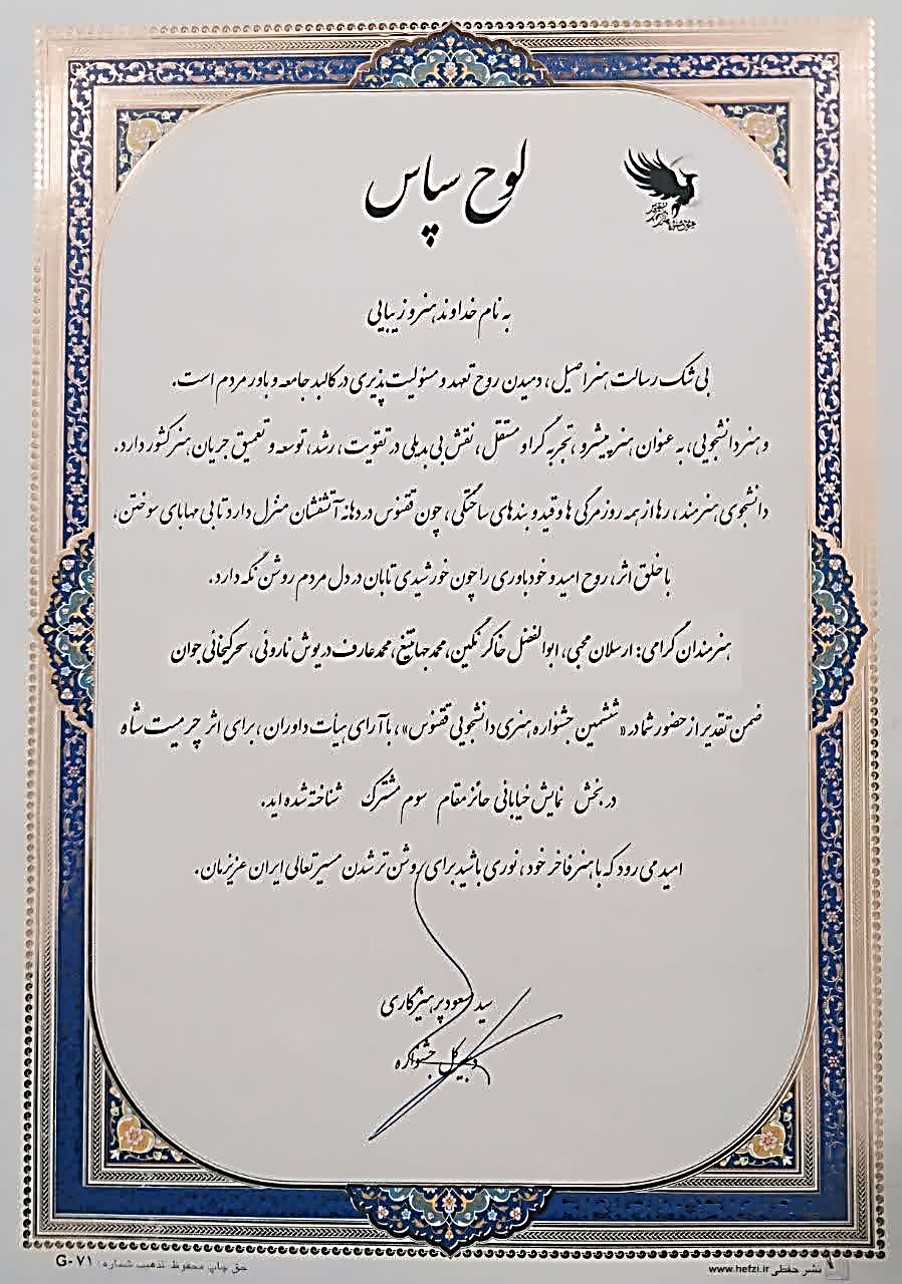 لوح سپاس
به نام خداوند هنر و زیبایی
بی شک رسالت هنر اصیل، دمیدن روح تعهد و مسئولیت پذیری در کالبد جامعه و باور مردم است.
و هنر دانشجویی، به عنوان هنر پیشرو، تجربه گرا و مستقل، نقش بی بدیلی در تقویت، رشد، توسعه و تعمیق جریان هنر کشور دارد.
دانشجوی هنرمند، رها از همه روزمرگی ها و قید و بندهای ساختگی، چون ققنوس در دهانه آتشفشان منزل دارد تا بی مهابای سوختن،
با خلق اثر، روح امید و خودباوری را چون خورشیدی تابان در دل مردم روشن نگه دارد.
هنرمندان گرامی: ارسلان محبی، ابوالفضل خاکر نگین، محمد جهانتیغ، محمد عارف درپوش ناروئی، سحر کیخائی جوان
ضمن تقدیر از حضور شما در «ششمین جشنواره هنری دانشجویی ققنوس»، با آرای هیأت داوران، برای اثر چرمیت شاه
در بخش نمایش خیابانی حائز مقام سوم مشترک شناخته شده اید.
امید می رود که با هنر فاخر خود، نوری باشید برای روشن تر شدن مسیر تعالی ایران عزیزمان.
سید مسعود پرهیزکاری
دبیر کل جشنواره
نشر حفظی www.hefzi.ir
حق چاپ محفوظ تذهیب شماره: G-۷۱